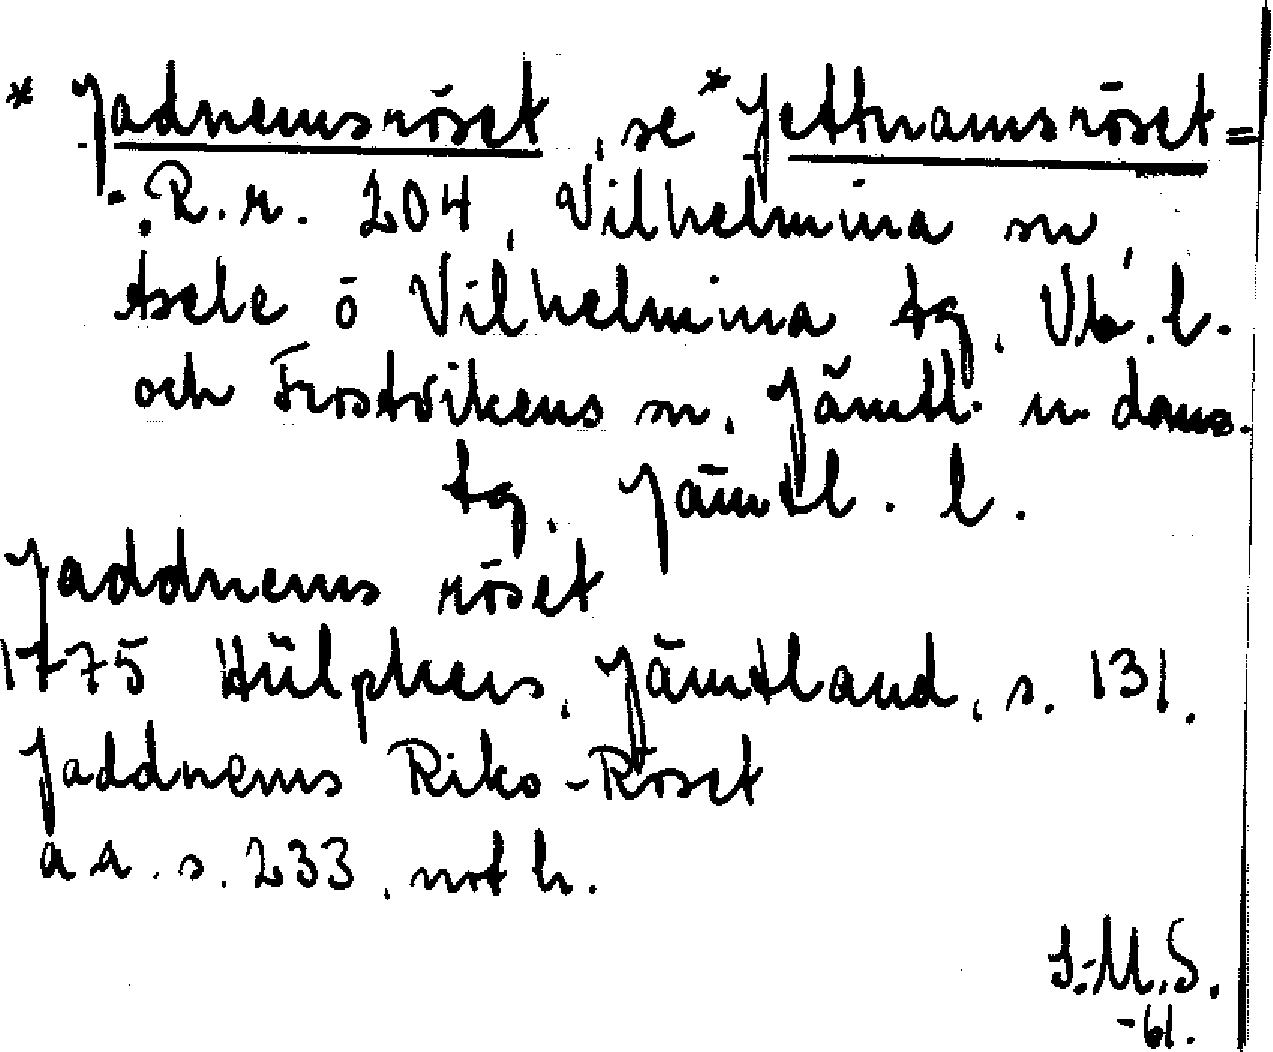 * Jadnemsröset, se * Jettnamsröset =
- R.r. 204, Vilhelmina sn,
Åsele o Vilhelmina tg, Vb. l.
och Frostvikens sn, Jämtl. n doms.
tg. Jämtl. l.
Jaddnems röset
1775 Hülphers, Jämtland, s. 131.
Jaddnems Riks-Röset
a a. s. 233, not h.
I.-M.S.
-61.